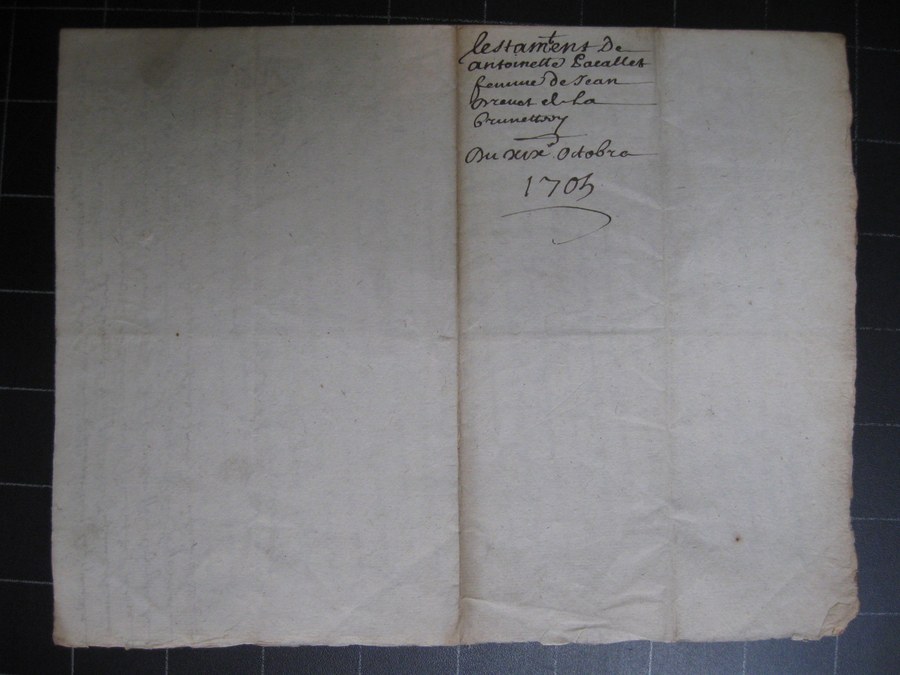 Testament De
antoinette Lacallet
femme de Jean
prevot de la
Brunettery
Du xix.e Octobre
1705